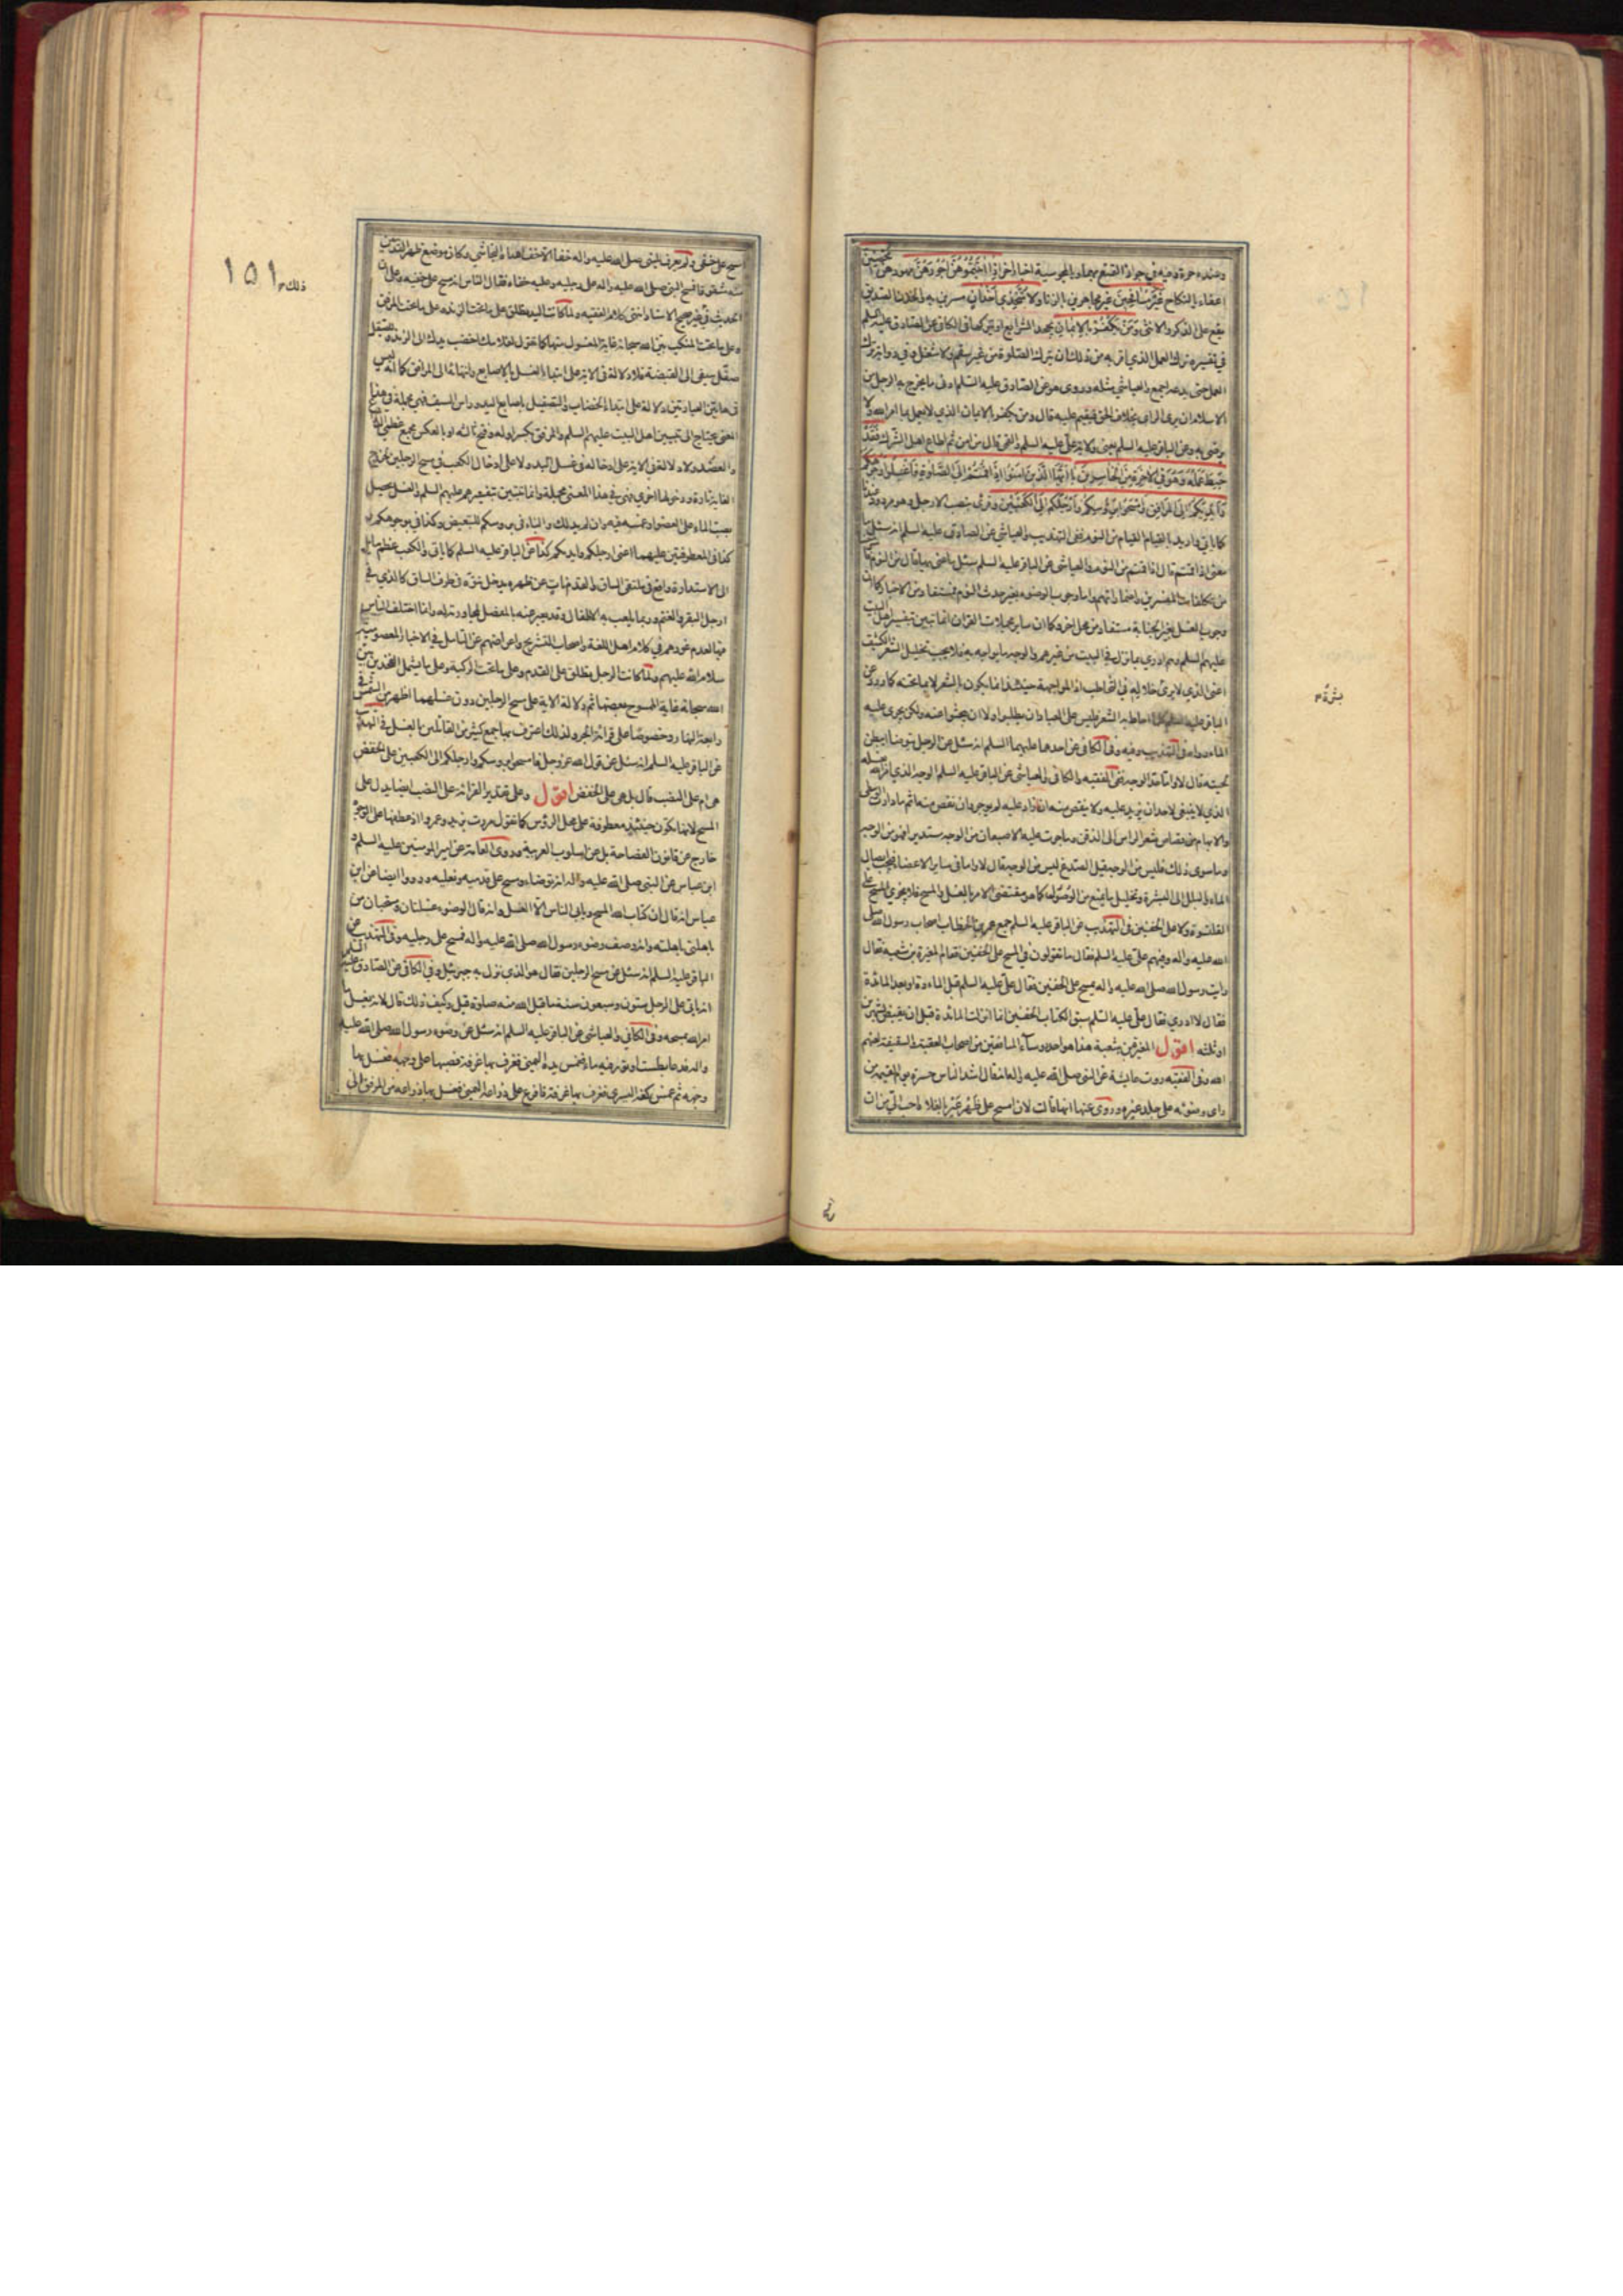 وعنده حرة وفيه في جواز التمتع بهما وبالمجوسية اخبار اخر اِذَا اٰتَيْتُمُوْهُنَّ اُجُوْرَهُنَّ مهورهن مُحْصِنِيْنَ
اعفاء بالنكاح غَيْرَ مُسَافِحِيْنَ غير مجاهرين بالزنا وَلَا مُتَّخِذِي اَخْدَانٍ مسرين به والخدن الصديق
يقع على الذكر والانثى وَمَنْ يَكْفُرْ بِالْاِيْمَانِ يجحد الشرايع او بتركها في الكافي عن الصادق عليه السلم
في تفسيره ترك العمل الذي اقر به من ذلك ان يترك الصلوة من غير سقم ولا شغل وفي رواية ترك
العمل حتى يدعه اجمع والعياشي مثله وروى هو عن الصادق عليه السلم ادنى ما يخرج به الرجل من
الاسلام ان يرى الراى بخلاف الحق فيقيم عليه قال ومن يكفر بالايمان الذي لا يعمل بما امر الله ولا
يرضى به وعن الباقر عليه السلم يعنى ولاية علي عليه السلم والقمي قال من امن ثم اطاع اهل الشرك فَقَدْ
حَبِطَ عَمَلُهُ وَهُوَ فِي الْاٰخِرَةِ مِنَ الْخَاسِرِيْنَ يَا اَيُّهَا الَّذِيْنَ اٰمَنُوْا اِذَا قُمْتُمْ اِلَى الصَّلٰوةِ فَاغْسِلُوا وُجُوْهَكُمْ
وَاَيْدِيَكُمْ اِلَى الْمَرَافِقِ وَامْسَحُوْا بِرُؤُسِكُمْ وَاَرْجُلِكُمْ اِلَى الْكَعْبَيْنِ وقرئ بنصب الارجل وهو مردود عندنا
كما ياتي واريد بالقيام القيام من النوم ففي التهذيب والعياشي عن الصادق عليه السلم انه سئل ما
معنى اذا قمتم قال اذا قمتم من النوم والعياشي عن الباقر عليه السلم سئل ما عنى بها قال من النوم
من تكلفات المفسرين واضماراتهم واما وجوب الوضوء بغير حدث النوم فمستفاد من الاخبار كما ان
وجوب الغسل بغير الجنابة مستفاد من محل اخر وكما ان ساير مجملات القران انما تبين بتفسير اهل البيت
عليهم السلم وهم ادرى بما نزل في البيت من غيرهم والوجه ما يواجه به فلا يجب تخليل الشعر الكثيف
اعنى الذي لا يرى خلاله في التخاطب اذ المواجهة حينئذ انما يكون بالشعر لا بما تحته كما ورد عن
الباقر عليه السلم كلما احاط به الشعر فليس على العباد ان يطلبوه ولا ان يبحثوا عنه ولكن يجرى عليه
الماء رواه في التهذيب وفيه وفي الكافي عن احدهما عليهما السلم انه سئل عن الرجل يتوضا ايبطن
لحيته قال لا واما حد الوجه ففي الفقيه والكافي والعياشي عن الباقر عليه السلم الوجه الذي امر الله بغسله
الذي لا ينبغي لاحد ان يزيد عليه ولا ينقص منه ان زاد عليه لم يوجر وان نقص منه اثم ما دارت الوسطى
والابهام من قصاص شعر الراس الى الذقن وما جرت عليه الاصبعان من الوجه مستديرا فهو من الوجه
وما سوى ذلك فليس من الوجه قيل الصدغ ليس من الوجه قال لا واما في ساير الاعضاء فيجب ايصال
الماء والبلل الى البشرة وتخليل ما يمنع من الوصول كما هو مقتضى الامر بالغسل والمسح فلا يجزي المسح على
القلنسوة ولا على الخفين في التهذيب عن الباقر عليه السلم جمع عمر بن الخطاب اصحاب رسول الله صلى
الله عليه واله وفيهم علي عليه السلم فقال ما تقولون في المسح على الخفين فقام المغيرة بن شعبة فقال
رايت رسول الله صلى الله عليه واله يمسح على الخفين فقال علي عليه السلم قبل المائدة او بعد المائدة
فقال لا ادري فقال علي عليه السلم سبق الكتاب الخفين انما انزلت المائدة قبل ان يقبض بشهرين
او ثلثة اقول المغيرة بن شعبة هذا هو احد رؤساء المنافقين من اصحاب العقبة والسقيفة لعنهم
الله وفي الفقيه روت عايشة عن النبي صلى الله عليه واله انه قال اشد الناس حسرة يوم القيمة من
راى وضوئه على جلد غيره وروى عنها انها قالت لان امسح على ظهر عير بالفلاة احب الي من ان
بشرة م
امسح على خفي ولم يعرف للنبي صلى الله عليه واله خف الا خف اهداه النجاشي وكان موضع ظهر القدمين
منه مشقوقا فمسح النبي صلى الله عليه واله على رجليه وعليه خفاه فقال الناس انه مسح على خفيه وعلى ان
الحديث في غير صحيح الاسناد انتهى كلام الفقيه ولما كانت اليد يطلق على ما تحت الزند وعلى ما تحت المرفق
وعلى ما تحت المنكب بين الله سبحانه غاية المغسول منها كما تقول لغلامك اخضب يدك الى الزند وللصيقل
صقل سيفي الى القبضة فلا دلالة في الاية على ابتداء الغسل بالاصابع وانتهائه الى المرافق كما انه ليس
في هاتين العبارتين دلالة على ابتداء الخضاب والتصقيل باصابع اليد وراس السيف فهي مجملة في هذا
المعنى يحتاج الى تبيين اهل البيت عليهم السلم والمرفق بكسر اوله وفتح ثالثه او بالعكس مجمع عظمي الذراع
والعضد ولا دلالة في الاية على ادخاله في غسل اليد ولا على ادخال الكعب في مسح الرجلين لخروج
الغاية تارة ودخولها اخرى فهي في هذا المعنى مجملة وانما تتبين بتفسيرهم عليهم السلم والغسل يحصل
بصب الماء على العضو او غمسه فيه وان لم يدلك والباء في برؤسكم للتبعيض وكذا في بوجوهكم و
كذا في المعطوفتين عليهما اعنى ارجلكم وايديكم كذا عن الباقر عليه السلم كما ياتي والكعب عظم مايل
الى الاستدارة واقع في ملتقى الساق والقدم نات عن ظهره يدخل نتوه في طرف الساق كالذي في
ارجل البقر والغنم وربما يلعب به الاطفال وقد يعبر عنه بالمفصل لمجاورته له وانما اختلف الناس
فيه لعدم غورهم في كلام اهل اللغة واصحاب التشريح واعراضهم عن التامل في الاخبار المعصومية
سلام الله عليهم ولما كانت الرجل يطلق على القدم وعلى ما تحت الركبة وعلى ما يشمل الفخذين بين
الله سبحانه غاية الممسوح بعضها ثم دلالة الاية على مسح الرجلين دون غسلهما اظهر من الشمس في
رابعة النهار وخصوصا على قرائة الجر ولذلك اعترف بها جمع كثير من القائلين بالغسل في التهذيب
عن الباقر عليه السلم انه سئل عن قول الله عز وجل فامسحوا برؤسكم وارجلكم الى الكعبين على الخفض
هي ام على النصب قال بل هي على الخفض اقول وعلى تقدير القرائة على النصب ايضا يدل على
المسح لانها يكون حينئذ معطوفة على محل الرؤس كما تقول مررت بزيد وعمروا اذ عطفها على الوجوه
خارج عن قانون الفصاحة بل عن اسلوب العربية وروى العامة عن امير المؤمنين عليه السلم و
ابن عباس عن النبي صلى الله عليه واله انه توضاء ومسح على قدميه ونعليه ورووا ايضا عن ابن
عباس انه قال ان كتاب الله المسح ويابى الناس الا الغسل وانه قال الوضوء غسلتان ومسحتان من
باهلني باهلته وانه وصف وضوء رسول الله صلى الله عليه واله فمسح على رجليه وفي التهذيب عن
الباقر عليه السلم انه سئل عن مسح الرجلين فقال هو الذي نزل به جبرئيل وفي الكافي عن الصادق عليه السلم
انه ياتي على الرجل ستون وسبعون سنة ما قبل الله منه صلوة قيل وكيف ذلك قال لانه يغسل ما
امر الله بمسحه وفي الكافي والعياشي عن الباقر عليه السلم انه سئل عن وضوء رسول الله صلى الله عليه
واله فدعا بطست او تور فيه ماء فغمس يده اليمنى فغرف بها غرفة فصبها على وجهه فغسل بها
وجهه ثم غمس كفه اليسرى فغرف بها غرفة فافرغ على ذراعه اليمنى فغسل بها ذراعه من المرفق الى
ذلك م
١٥١